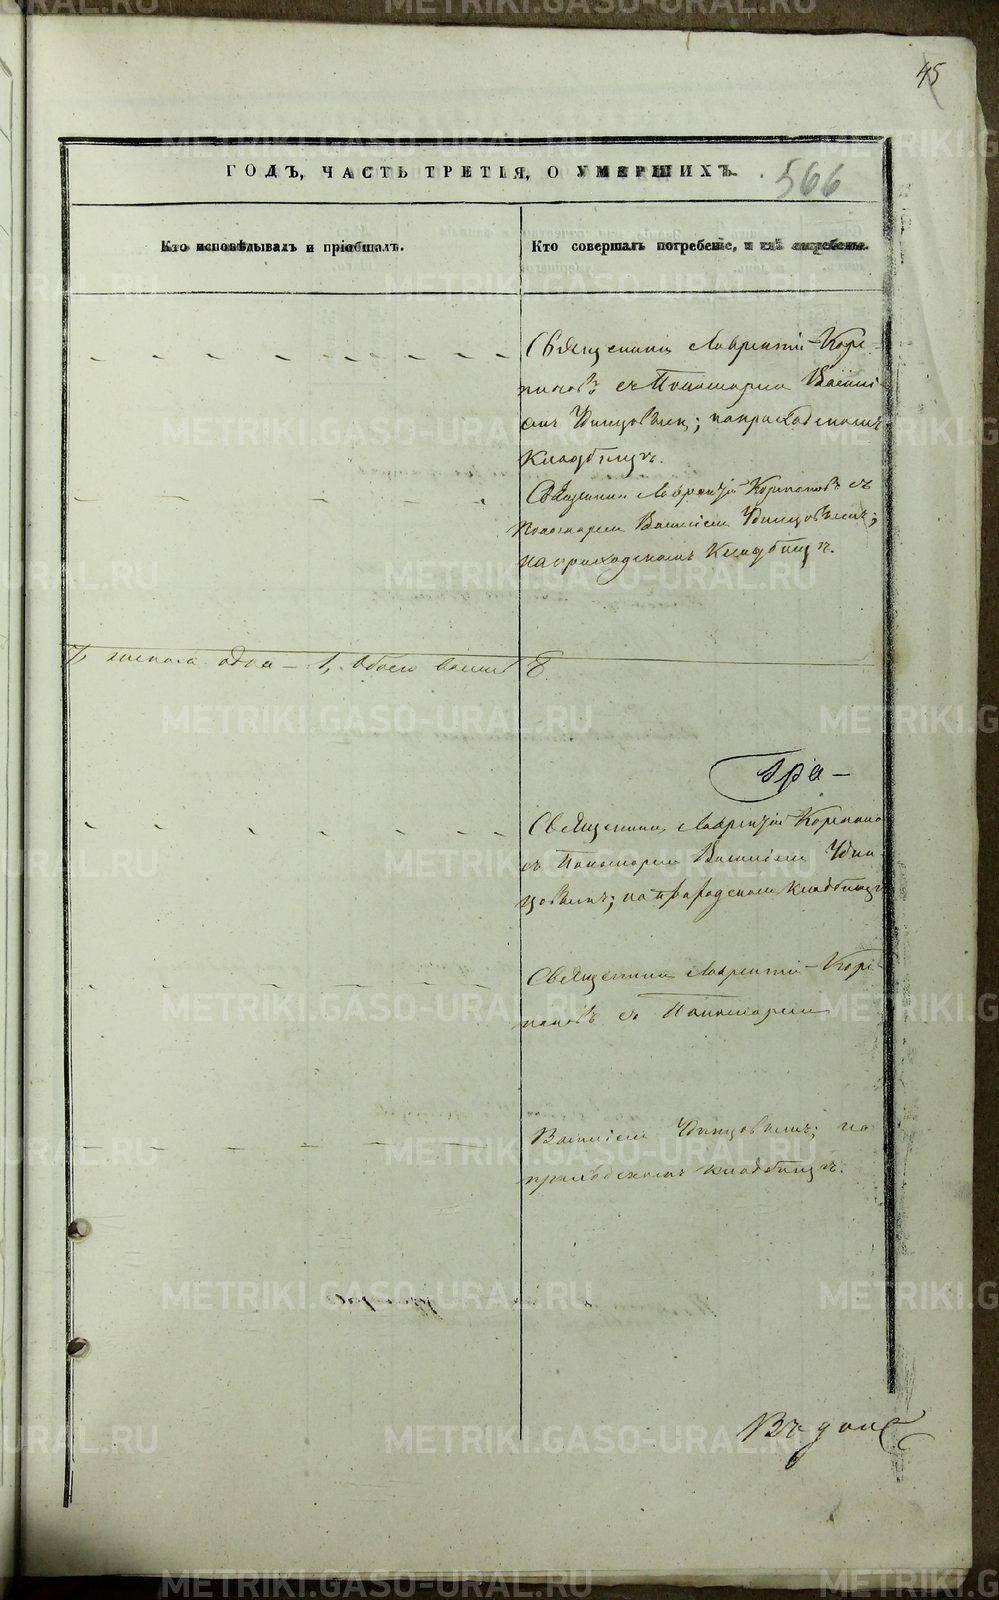 45
ГОДЪ, ЧАСТЬ ТРЕТІЯ, О УМЕРШИХЪ.
566
Кто исповѣдывалъ и пріобщалъ.
Кто совершалъ погребеніе, и гдѣ погребены.
Священникъ Лаврентій Коре-
пановъ съ Пономаремъ Василі-
емъ Удинцовымъ; на приходскомъ
Кладбищѣ.
Священникъ Лаврентій Корепановъ съ
Пономаремъ Василіемъ Удинцовымъ;
на приходскомъ Кладбищѣ.
женска одна – 1, обоего 8.
Гра-
Священникъ Лаврентій Корепановъ
съ Пономаремъ Василіемъ Удин-
цовымъ; на приходскомъ кладбищѣ
Священникъ Лаврентій Коре-
пановъ съ Пономаремъ
Василіемъ Удинцовымъ; на
приходскомъ кладбищѣ.
METRIKI.GASO-URAL.RU